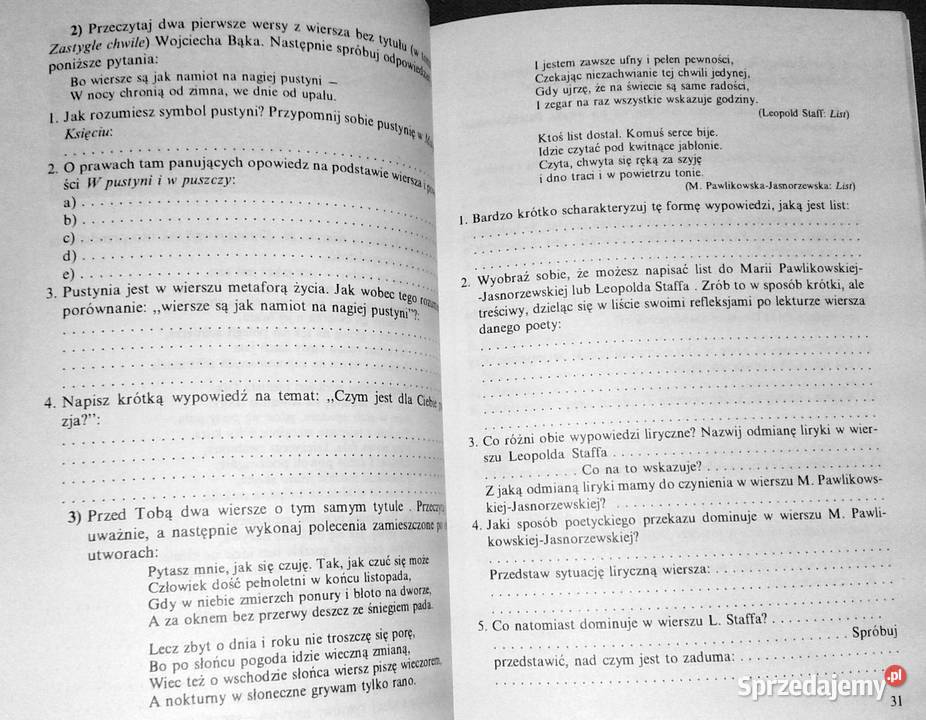 2) Przeczytaj dwa pierwsze wersy z wiersza bez tytułu (w
Zastygłe chwile) Wojciecha Bąka. Następnie spróbuj odpowiedzieć
poniższe pytania:
Bo wiersze są jak namiot na nagiej pustyni –
W nocy chronią od zimna, we dnie od upału.
1. Jak rozumiesz symbol pustyni? Przypomnij sobie pustynię w
Księciu:
2. O prawach tam panujących opowiedz na podstawie wiersza i
ści W pustyni i w puszczy:
a)
b)
c)
d)
e)
3. Pustynia jest w wierszu metaforą życia. Jak wobec tego
porównanie: ,,wiersze są jak namiot na nagiej pustyni"?:
4. Napisz krótką wypowiedź na temat: ,,Czym jest dla Ciebie
zja?":
3) Przed Tobą dwa wiersze o tym samym tytule . Przeczytaj
uważnie, a następnie wykonaj polecenia zamieszczone po
utworach:
Pytasz mnie, jak się czuję. Tak, jak czuć się może
Człowiek dość pełnoletni w końcu listopada,
Gdy w niebie zmierzch ponury i błoto na dworze,
A za oknem bez przerwy deszcz ze śniegiem pada.
Lecz zbyt o dnia i roku nie troszczę się porę,
Bo po słońcu pogoda idzie wieczną zmianą,
Więc też o wschodzie słońca wiersz piszę wieczorem,
A nokturny w słoneczne grywam tylko rano.
I jestem zawsze ufny i pełen pewności,
Czekając niezachwianie tej chwili jedynej,
Gdy ujrzę, że na świecie są same radości,
I zegar na raz wszystkie wskazuje godziny.
(Leopold Staff: List)
Ktoś list dostał. Komuś serce bije.
Idzie czytać pod kwitnące jabłonie.
Czyta, chwyta się ręką za szyję
i dno traci i w powietrzu tonie.
(M. Pawlikowska-Jasnorzewska: List)
1. Bardzo krótko scharakteryzuj tę formę wypowiedzi, jaką jest list:
2. Wyobraź sobie, że możesz napisać list do Marii Pawlikowskiej-
-Jasnorzewskiej lub Leopolda Staffa . Zrób to w sposób krótki, ale
treściwy, dzieląc się w liście swoimi refleksjami po lekturze wiersza
danego poety:
3. Co różni obie wypowiedzi liryczne? Nazwij odmianę liryki w wier-
szu Leopolda Staffa
Co na to wskazuje?
Z jaką odmianą liryki mamy do czynienia w wierszu M. Pawlikows-
kiej-Jasnorzewskiej?
4. Jaki sposób poetyckiego przekazu dominuje w wierszu M. Pawli-
kowskiej-Jasnorzewskiej?
Przedstaw sytuację liryczną wiersza:
5. Co natomiast dominuje w wierszu L. Staffa?
Spróbuj
przedstawić, nad czym jest to zaduma:
31
Sprzedajemy.pl